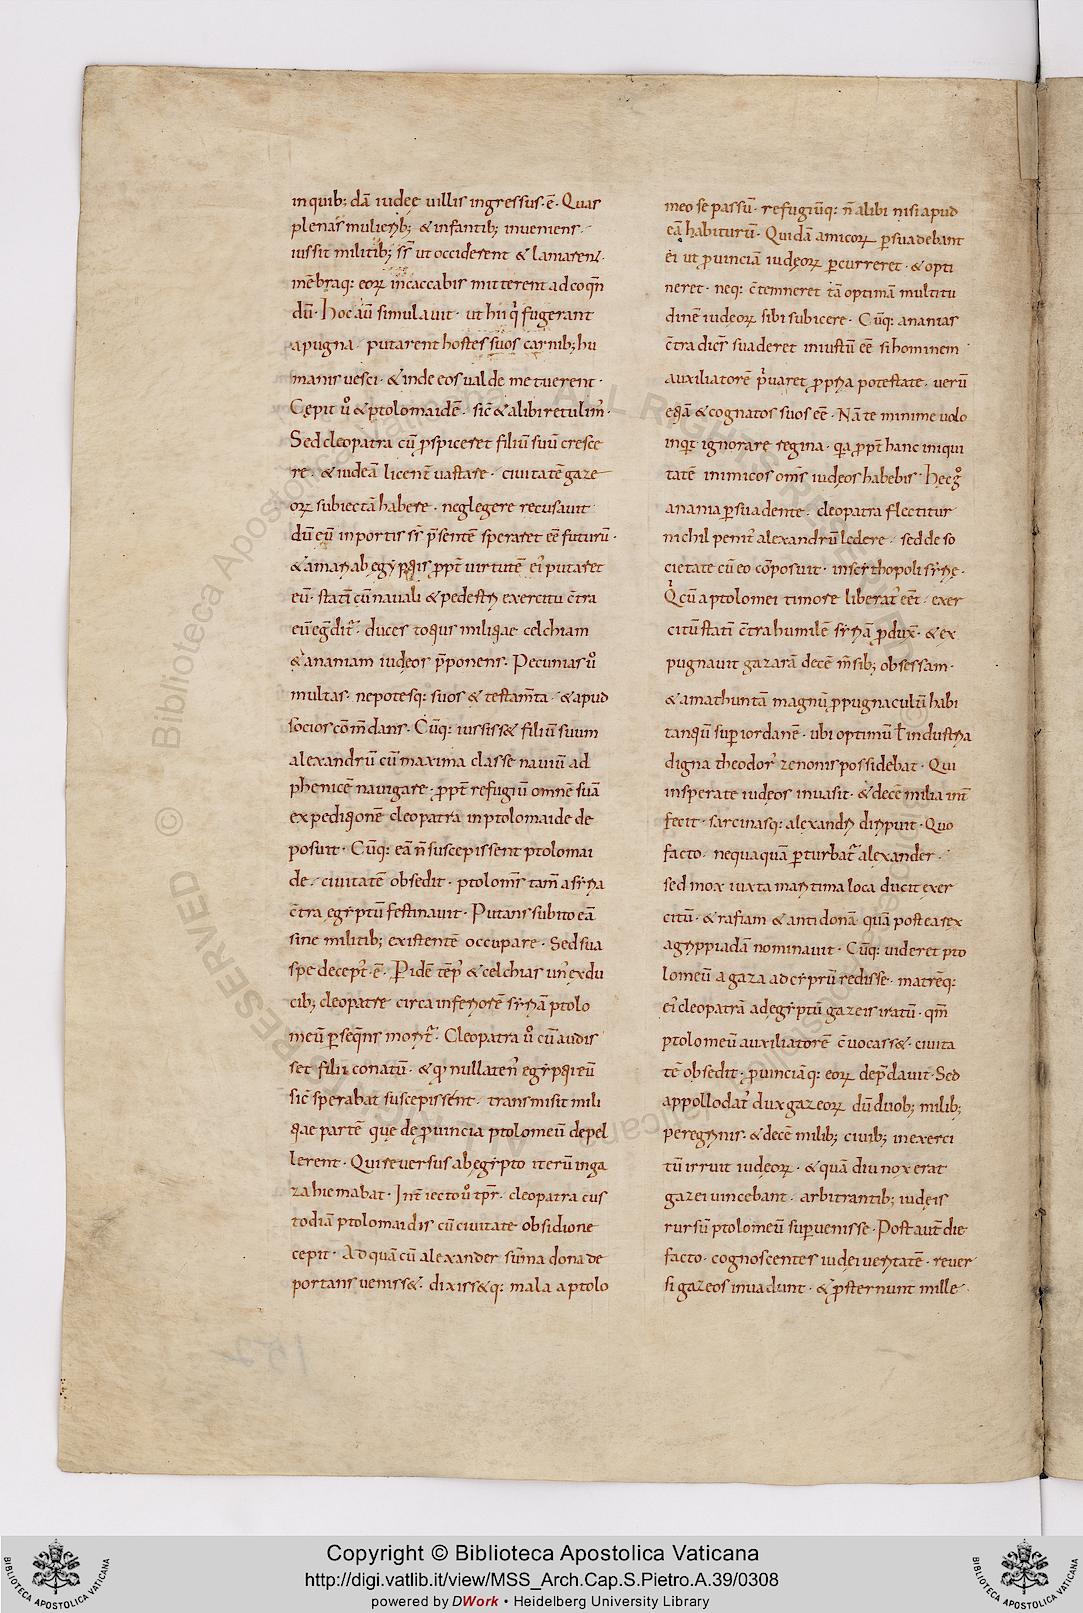 in quib; dā iudeę uillis ingressus · ē · Quas
plenas mulierib; & infantib; inueniens ·
iussit militib; sr̄ ut occiderent & laniarent ·
mēbraq: eorꝝ in caccabis mitterent ad coqn̄
dū · Hoc aū simulauit · ut hii q̇ fugerant
a pugna · putarent hostes suos carnib; hu
manis uesci · & inde eos ualde metuerent ·
Cepit u̇ & ptolomaidē · sic̄ & alibi retulim᾽ ·
Sed cleopatra cū ꝑspiceret filiū suū cresce
re · & iudeā licent̄ uastare · ciuitatē gaze
orꝝ subiectā habere · neglegere recusauit
dū eū in portis sr̄ p̄sentē speraret eē futurū ·
& amari ab egyptiis ꝓpt̄ uirtutē ei᾽ putaret
eū · statī cū nauali & pedestri exercitu c̄tra
eū egdit᾽ · duces toti᾽ militiae celchiam
& ananiam iudeos p̄ponens · Pecunias u̇
multas · nepotesq: suos & testam̄ta · & apud
socios cōm̄dans · Cūq: iussiss& filiū suum
alexandrū cū maxima classe nauiū ad
phenicē nauigare · ꝓpt̄ refugiū omnē suā
expeditionē cleopatra in ptolomaide de
posuit · Cūq: eā n̄ suscepissent ptolomai
de · ciuitatē obsedit · ptolom᾽s tam̄ a syria
c̄tra egyptū festinauit · Putans subito eā
sine militib; existentē occupare · Sed sua
spe decept᾽ · ē · P idē tēp᾽ & celchias un᾽ ex du
cib; cleopatre circa inferiorē syriā ptolo
meū ꝑseqn̄s morit᾽ · Cleopatra u̇ cū audis
set filii conatū · & qđ nullaten᾽ egyptii eū
sic̄ sperabat suscepissent · transmisit mili
tiae partē que de ꝓuincia ptolomeū depel
lerent · Qui reuersus ab egypto iterū in ga
za hiemabat · Int̄iecto u̇ tp̄r · cleopatra cus
todiā ptolomaidis cū ciuitate obsidione
cepit · Ad quā cū alexander sūma dona de
portans ueniss& · dixiss&q: mala a ptolo
meo se passū · refugiūq: n̄ alibi nisi apud
eā habiturū · Quidā amicorꝝ ꝑsuadebant
ei ut ꝓuinciā iudeorꝝ ꝑcurreret · & opti
neret · neq: c̄temneret tā optimā multitu
dinē iudeorꝝ sibi subicere · Cūq: ananias
c̄tra dicēs suaderet iniustū eē si hominem
auxiliatorē p̓uaret ꝓpria potestate · uerū
etiā & cognatos suos eē · Nā te minime uolo
inqt᾽ ignorare regina · qa ꝓpt̄ hanc iniqui
tatē inimicos om̄s iudeos habebis · Hec g̊
anania ꝑsuadente · cleopatra flectitur
nichil penit᾽ alexandrū ledere · sed de so
cietate cū eo cōposuit · in scythopoli syrie ·
Q̇ cū a ptolomei timore liberat᾽ eēt · exer
citū statī c̄tra humilē syriā ꝓdux̄ · & ex
pugnauit gazarā decē m̄sib; obsessam ·
& amathuntā magnū ꝓpugnaculū habi
tanquū suꝑ iordanē · ubi optimū t̄ industria
digna theodor᾽ zenonis possidebat · Qui
insperate iudeos inuasit · & decē milia int̄
fecit · sarcinasq: alexandri diripuit · Quo
facto · nequaquā ꝑturbat᾽ alexander ·
sed mox iuxta maritima loca ducit exer
citū · & rafiam & antidonā quā postea rex
agrippiadā nominauit · Cūq: uideret pto
lomeū a gaza ad cyprū redisse · matrēq:
ei᾽ cleopatrā ad egyptū gazeis iratū · qm̄
ptolomeū auxiliatorē c̄uocass& · ciuita
tē obsedit · ꝓuinciāq: eorꝝ dep̄dauit · Sed
appollodat᾽ dux gazeorꝝ dū duob; milib;
peregrinis · & decē milib; ciuib; in exerci
tū irruit iudeorꝝ · & quādiu nox erat
gazei uincebant · arbitrantib; iudeis
rursū ptolomeū suꝑuenisse · Post aut̄ die
facto · cognoscentes iudei ueritatē · reuer
si gazeos inuadunt · & ꝓsternunt mille ·
© Biblioteca Apostolica Vaticana
ALL RIGHTS RESERVED
Copyright © Biblioteca Apostolica Vaticana
http://digi.vatlib.it/view/MSS_Arch.Cap.S.Pietro.A.39/0308
powered by DWork • Heidelberg University Library